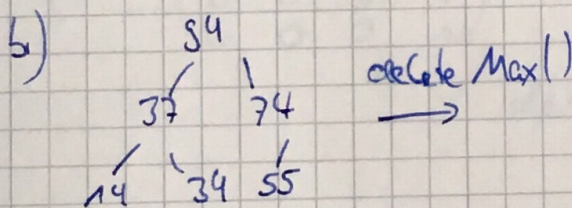 b)
94
37 74 deleteMax()
14 34 55